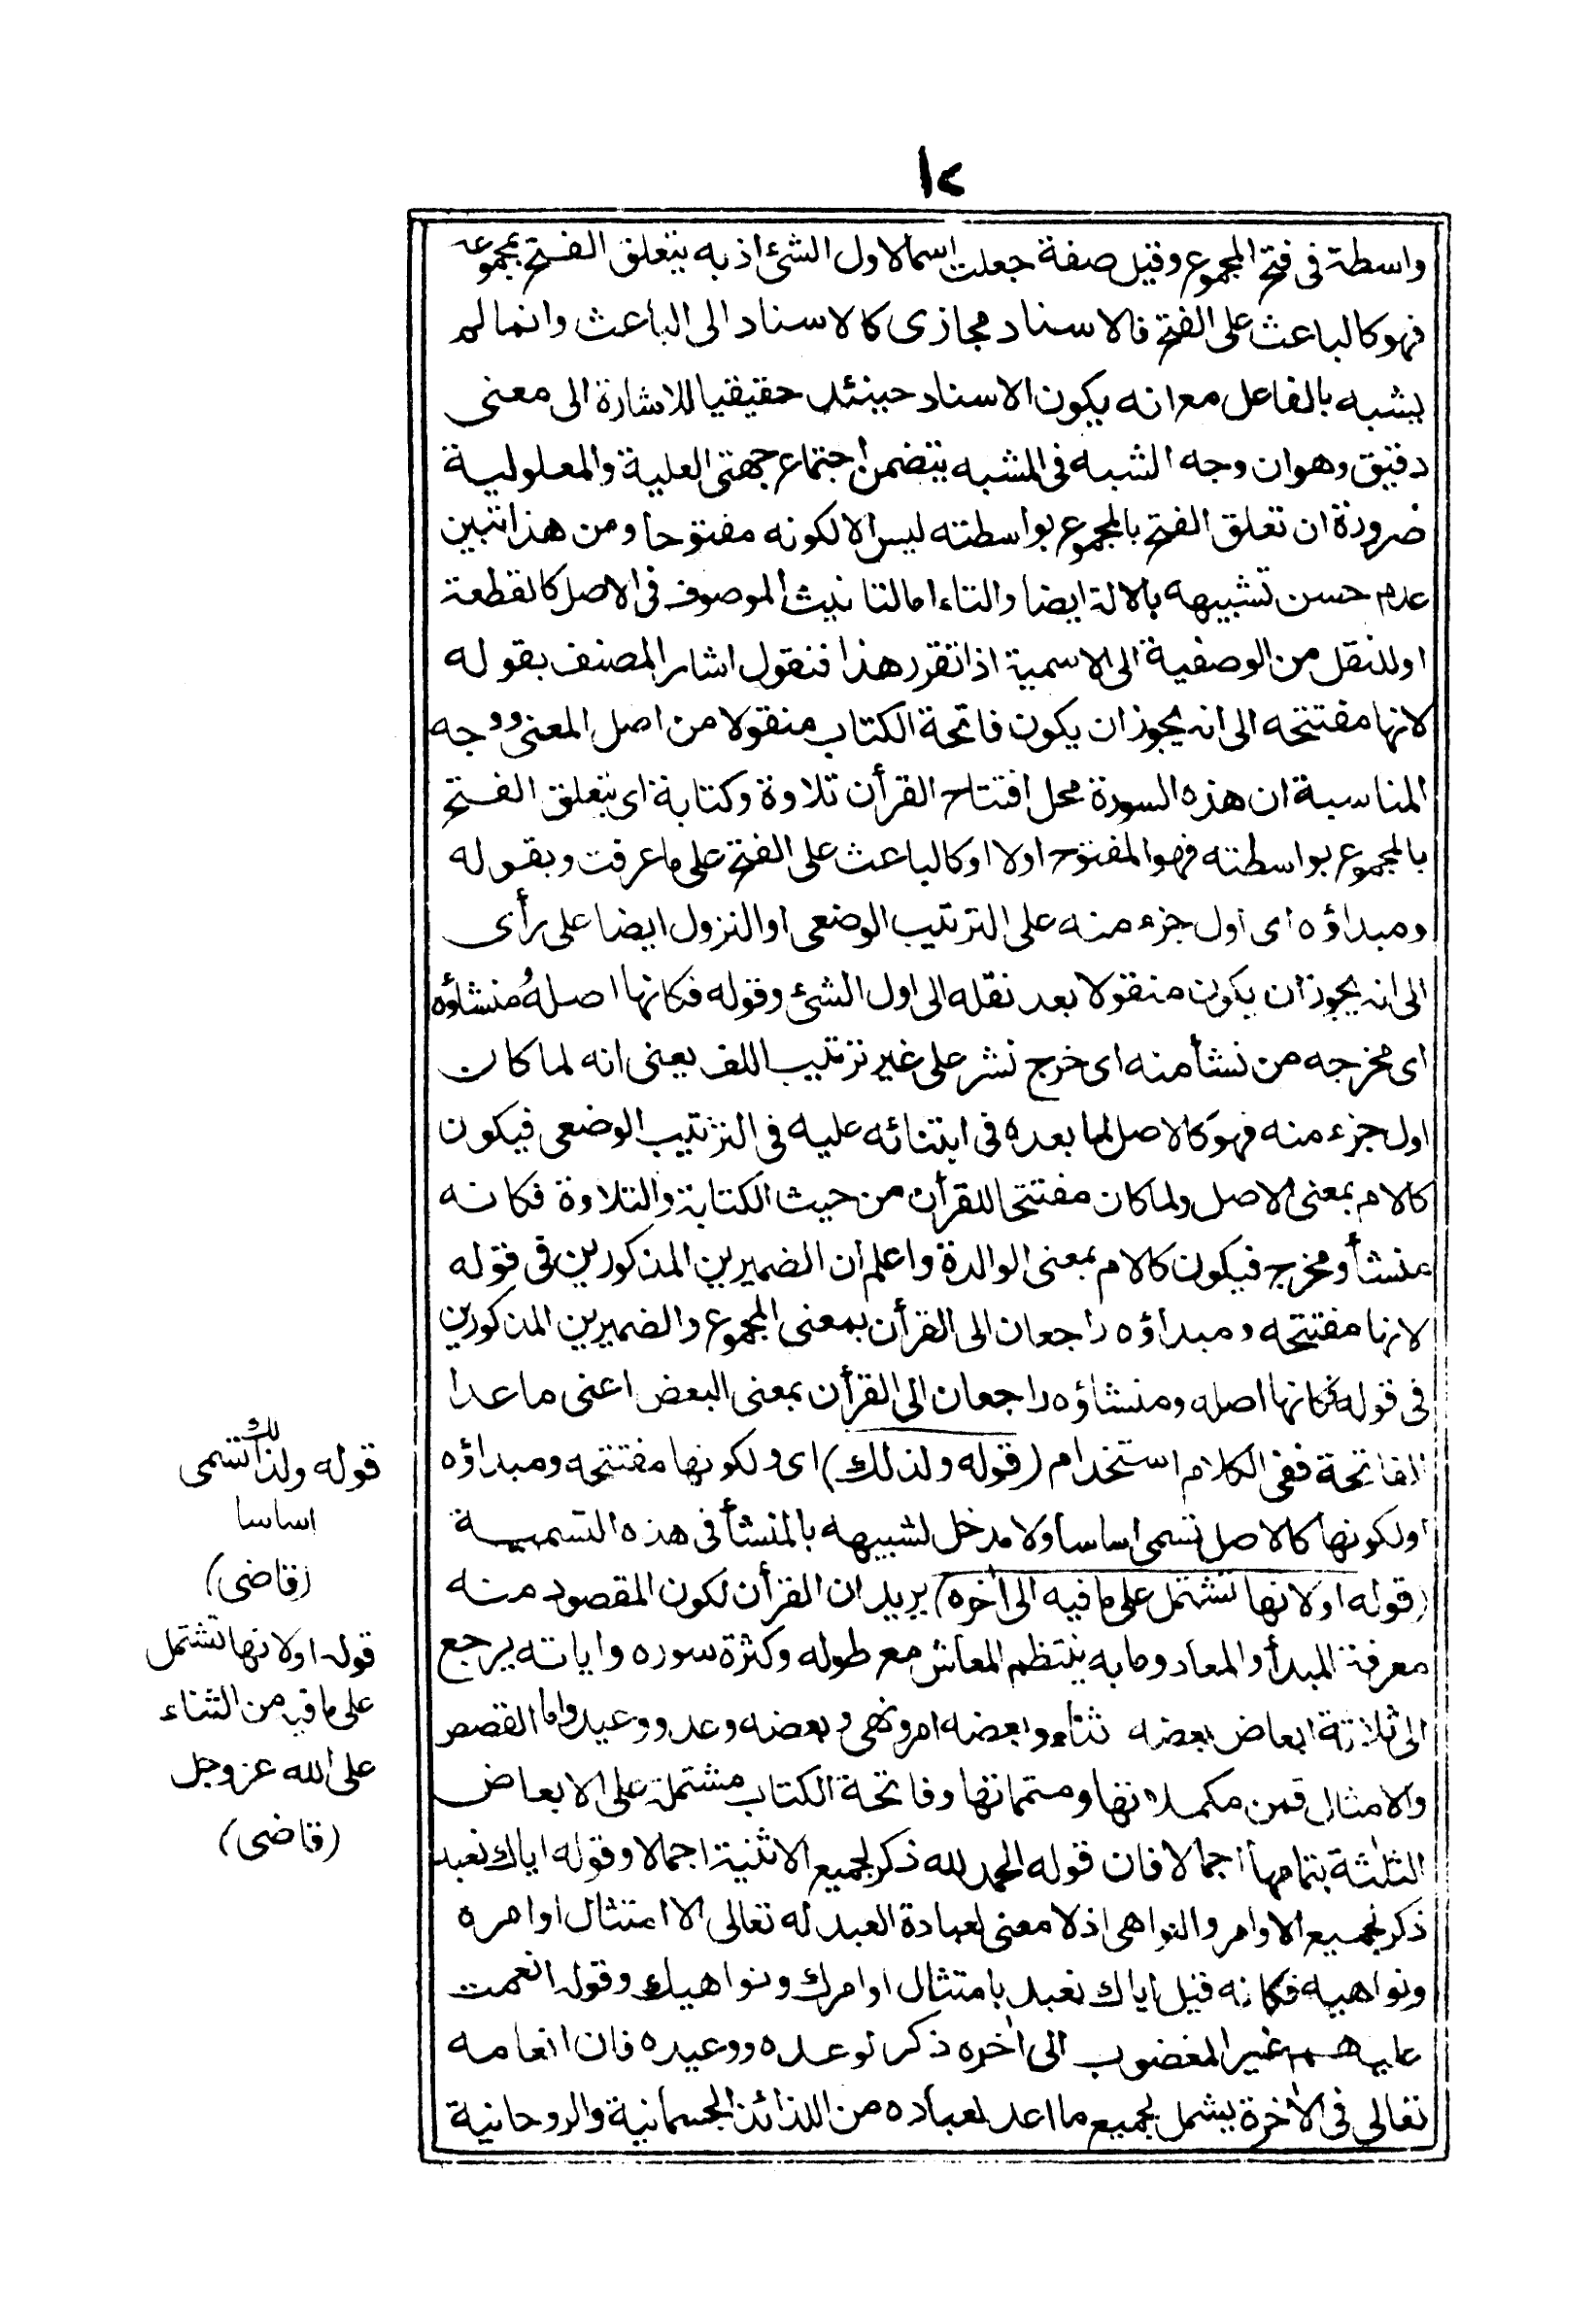 ١٢
واسطة فى فتح المجموع وقيل صفة جعلت اسما لاول الشئ اذ به يتعلق الفتح بمجموعه
فهو كالباعث على الفتح فالاسناد مجازى كالاسناد الى الباعث وانما لم
يشبه بالفاعل مع انه يكون الاسناد حينئذ حقيقيا للاشارة الى معنى
دقيق وهو ان وجه الشبه فى المشبه يتضمن اجتماع جهتى العلية والمعلولية
ضرورة ان تعلق الفتح بالمجموع بواسطته ليس الا لكونه مفتوحا ومن هذا تبين
عدم حسن تشبيهه بالالة ايضا والتاء اما لتانيث الموصوف فى الاصل كالقطعة
او للنقل من الوصفية الى الاسمية اذا تقرر هذا فنقول اشار المصنف بقوله
لانها مفتتحه الى انه يجوز ان يكون فاتحة الكتاب منقولا من اصل المعنى ووجه
المناسبة ان هذه السورة محل افتتاح القرأن تلاوة وكتابة اى يتعلق الفتح
بالمجموع بواسطته فهو المفتوح اولا او كالباعث على الفتح على ما عرفت وبقوله
ومبداؤه اى اول جزء منه على الترتيب الوضعى او النزول ايضا على رأى
الى انه يجوز ان يكون منقولا بعد نقله الى اول الشئ وقوله فكانها اصله ومنشاؤه
اى مخرجه من نشأ منه اى خرج نشر على غير ترتيب اللف يعنى انه لما كان
اول جزء منه فهو كالاصل لما بعده فى ابتنائه عليه فى الترتيب الوضعى فيكون
كالام بمعنى الاصل ولما كان مفتتحا للقرأن من حيث الكتابة والتلاوة فكانه
منشأ ومخرج فيكون كالام بمعنى الوالدة واعلم ان الضميرين المذكورين فى قوله
لانها مفتتحه ومبداؤه راجعان الى القرأن بمعنى المجموع والضميرين المذكورين
فى قوله فكانها اصله ومنشاؤه راجعان الى القرأن بمعنى البعض اعنى ما عدا
الفاتحة ففى الكلام استخدام (قوله ولذلك) اى ولكونها مفتتحه ومبداؤه
او لكونها كالاصل تسمى اساسا ولا مدخل لشبيهه بالمنشأ فى هذه التسمية
(قوله او لانها تشتمل على ما فيه الى أخره) يريد ان القرأن لكون المقصود منه
معرفة المبدأ والمعاد وما به ينتظم المعاش مع طوله وكثرة سوره واياته يرجع
الى ثلاثة ابعاض بعضه ثناء وبعضه امر ونهى وبعضه وعد ووعيد واما القصص
والامثال فمن مكملاتها ومتمماتها وفاتحة الكتاب مشتملة على الابعاض
الثلثة بتمامها اجمالا فان قوله الحمد لله ذكر لجميع الاثنية اجمالا وقوله اياك نعبد
ذكر لجميع الاوامر والنواهى اذ لا معنى لعبادة العبد له تعالى الا امتثال اوامره
ونواهيه فكانه قيل اياك نعبد بامتثال اوامرك ونواهيك وقوله انعمت
عليهم غير المغضوب الى أخره ذكر لوعده ووعيده فان انعامه
تعالى فى الأخرة يشمل لجميع ما اعد لعباده من اللذائذ الجسمانية والروحانية
قوله ولذلك تسمى
اساسا
(قاضى)
قوله او لانها تشتمل
على ما فيه من الثناء
على الله عز وجل
(قاضى)